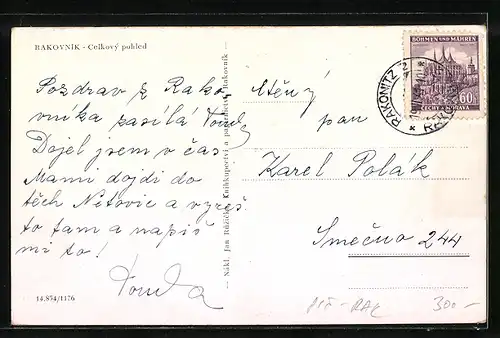 RAKOVNÍK - Celkový pohled
Pozdrav z Rako
vníka zasílá Tonda
Dojel jsem v čas
Mami dojdi do
těch Netovic a vyřeš
to tam a napiš
mi to!
Tonda
14.854/1176
— Nákl. Jan Růžička, Knihkupectví a papírnictví, Rakovník —
BÖHMEN UND MÄHREN
ČECHY A MORAVA
60
RAKONITZ 2
Ctěný
pan
Karel Polák
Smečno 244
300-